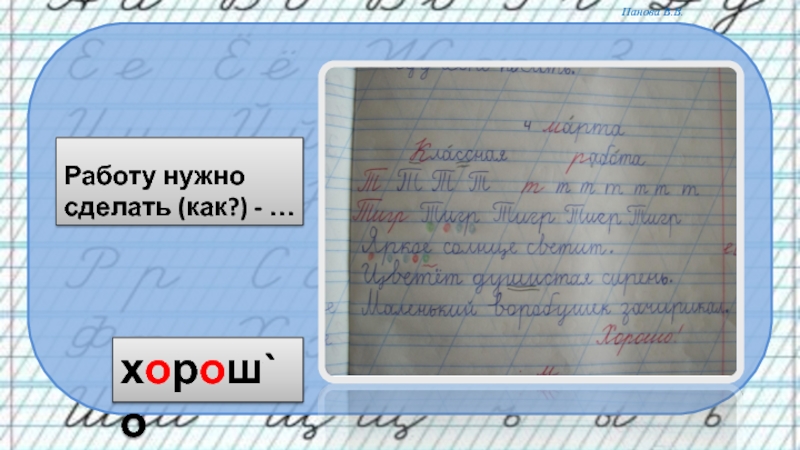 Панова В.В.
Работу нужно
сделать (как?) - …
хорош`
о
4 марта
Классная работа
Т Т Т Т т т т т т т т
Тигр Тигр Тигр Тигр Тигр
Яркое солнце светит.
Цветёт душистая сирень.
Маленький воробушек зачирикал.
Хорошо!